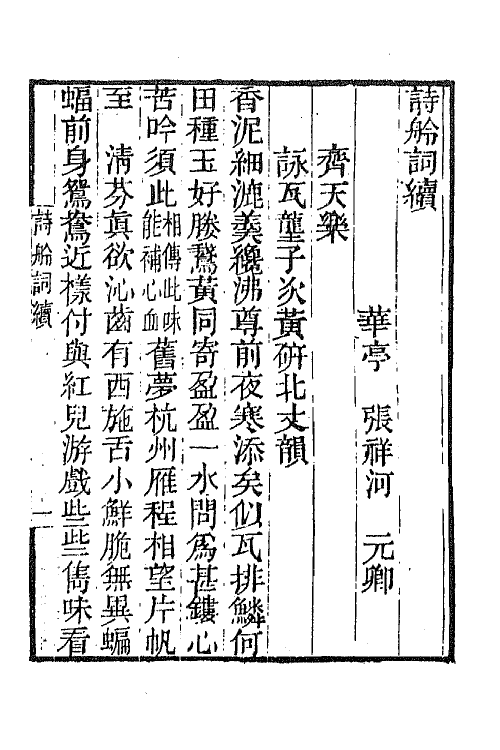 詩舲詞續
華亭　張祥河　元卿
齊天樂
詠瓦壟子次黃硏北丈韻
香泥細漉羹纔沸尊前夜寒添矣似瓦排鱗何
田種玉好勝鵞黃同寄盈盈一水問爲甚鏤心
苦吟須此相傳此味能補心血舊夢杭州雁程相望片帆
至　淸芬眞欲沁齒有西施舌小鮮脆無異蝙
蝠前身鴛鴦近樣付與紅兒游戲些些雋味看
詩舲詞續
一